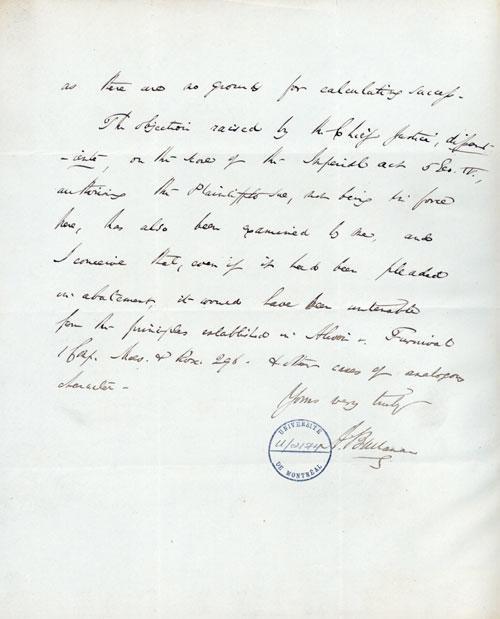 as there are no grounds for calculating success.
The objection raised by the Chief Justice,
on the score of the Imperial act 5 Geo. IV.,
authorizing the Plaintiff to sue, not being in force
here, has also been examined by me, and
I conceive that, even if it had been pleaded
in abatement, it would have been untenable
from the principles established in v. Furnival
1 Cromp. Mees. & Ros. 296. & other cases of analogous
character -
Yours very truly
Buchanan
UNIVERSITÉ
DE MONTRÉAL